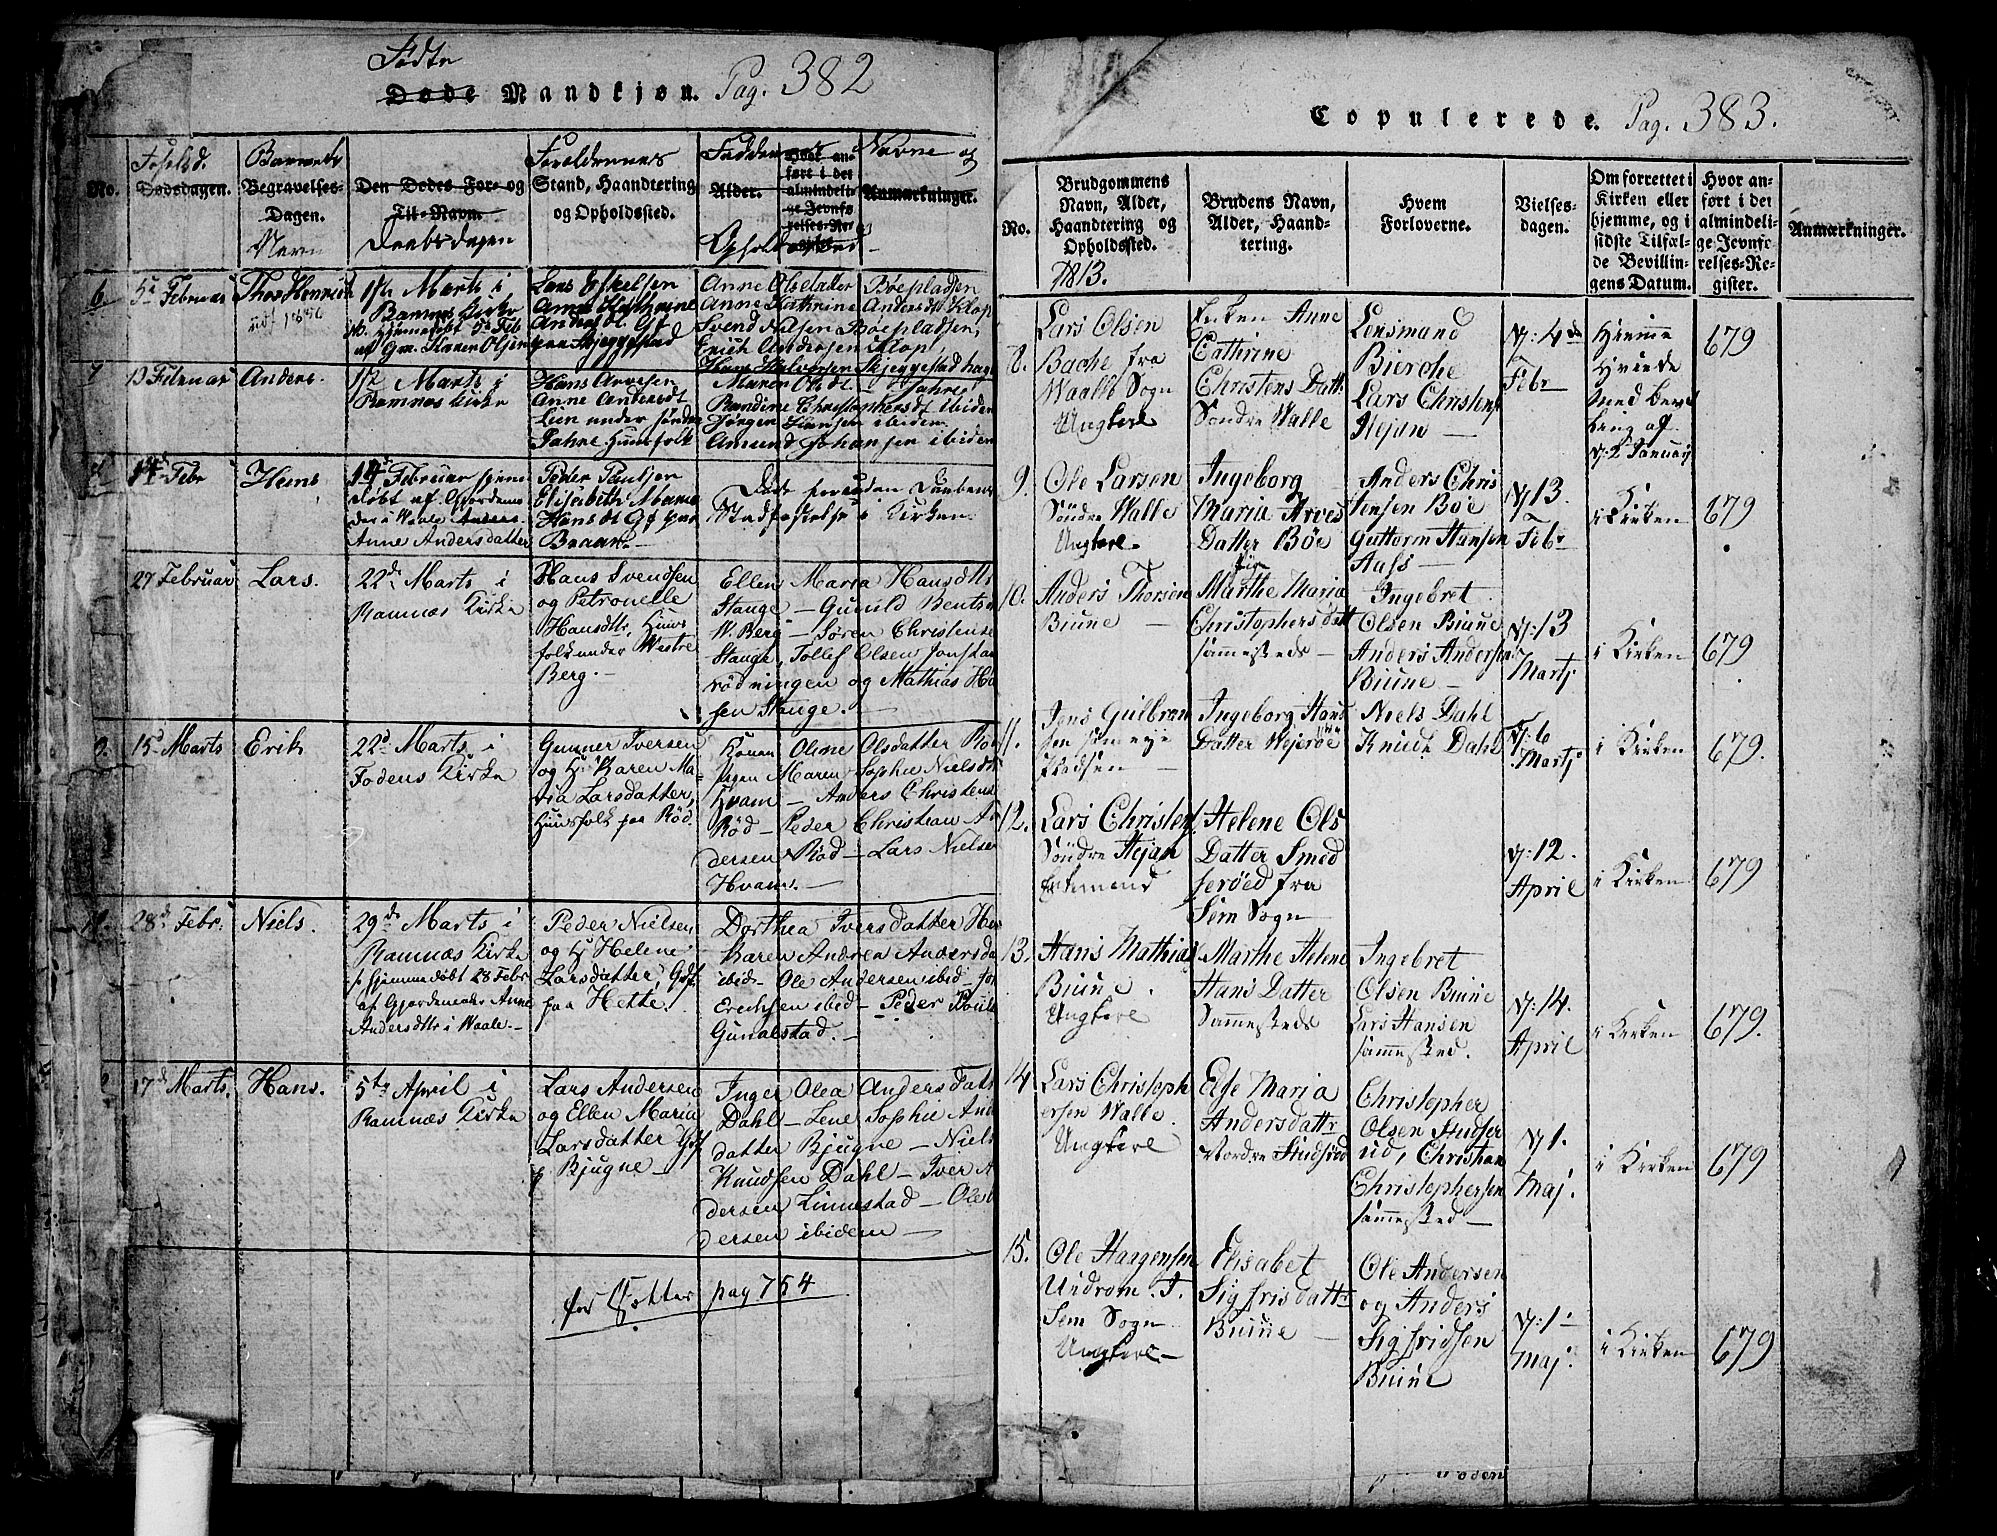 Fødte
Døde Mandkjøn. Pag. 382
No.
Fødselsd.
Dødsdagen.
Barnets
Begravelses-
Dagen.
Navn
Den Dødes For- og
Til-Navn.
Daabsdagen
Forældrenes
Stand, Haandtering
og Opholdssted.
Faddernes Navne og
Alder.
Hvor an-
ført i det
almindeli-
ge Jevnfø
relses-Re-
gister.
Anmærkninger.
Ophold
6
5t Februar
Thor Henrich
1/2 Marts i
Ramnes Kirke
Lars Eskelsen
Anne Kathrine
Andersdt
paa Skjeggestad
Anne Olsdatter Bøepladsen
Anne Kathrine Andersdt Klop
Svend Nilsen Bøepladsen,
Erich Andersen Klop
Hans Halvorsen Skjeggestad hage
7
13 Februar
Anders.
1/2 Marts i
Ramnæs Kirke
Hans Arvesen
Anne Andersdt
Lien under søndre
Jahre Huusfolk
Maren Olsdt Jahre
Randine Christophersdt ibiden
Jørgen Hansen ibidem
Amund Johansen ibiden
14d Febr
Hans
14d Februar hjemme
døbt af Gjordemo
der i Waale
Anne Andersdatter
Peder Paulsen
Elisabeth Maria
Hansdt Gf paa
Braan.
Døde forinden Daabens
Stadfæstelse i Kirken.
27 Februar
Lars.
22d Marts i
Ramnæs Kirke
Hans Svendsen
og Petronelle
Hansdttr, Huus
folk under Westre
Berg.
Ellen Maria Hansdttr
Stange - Gunild Bents
W. Berg - Søren Christense
Stange, Tollef Olsen
rødningen og Mathias Ha
sen Stange.
9.
15d Marts
Erik
22d Marts i
Fodens Kirke
Gunner Iversen
og H. Karen Ma-
ria Larsdatter,
Huusfolk paa Rød.
Konen Oline Olsdatter Rød
Pigen Maren Sophie Nielsdtr
Hvam - Anders Christens
Rød - Peder Christian An
dersen Rød - Lars Nielse
Hvam. -
28d Febr.
Niels.
29d Marts i
Ramnæs Kirke
hjemmedøbt 28 Febr
af Gjordemoder Anne
Andersdttr i Waale. -
Peder Nielsen
og H Helene
Larsdatter, Gdf
paa Hette.
Dorthea Iversdatter He
Karen Andrea Andersda
ibid- Ole Andersen ibid-
Erichsen ibid- Peder Poule
Gunalstad. -
17d Marts.
Hans.
5te April i
Ramnæs Kirke
Lars Andersen
og Ellen Maria
Larsdatter Gdf
p Bjugne -
Inger Olea Anders Datt
Dahl - Lene Sophie And
datter Bjugne - Niels
Knudsen Dahl - Iver A
dersen Linnestad - Ole
dersen ibidem -
for Døttre pag 754
Copulerede. Pag. 383.
No.
Brudgommens
Navn, Alder,
Haandtering og
Opholdssted.
1813.
Brudens Navn,
Alder, Haand-
tering.
Hvem
Forloverne.
Vielses-
dagen.
Om forrettet i
Kirken eller
hjemme, og i
sidste Tilfæl-
de Bevillin-
gens Datum.
Hvor an-
ført i det
almindeli-
ge Jevnfø
relses-Re-
gister.
Anmærkninger.
8.
Lars Olsen
Bache fra
Waalle Sogn
Ungkarl
Enken Anne
Cathrine
Christens Datt
Søndre Walle
Lensmand
Bierche
Lars Christens
Hejan -
d: 4de
Febr
Hiemme
Viede
med Bevil
ling af
d: 2 Januarij
679
9.
Ole Larsen
Søndre Walle
Ungkarl.
Ingeborg
Maria Arves
Datter Bøe
Anders Chris
tensen Bøe
Guttorm Hansen
Aass -
d 13.
Febr
i Kirken
679
10.
Anders Thorsen
Biune -
Pige
Marthe Maria
Christophersdatt
sammesteds -
Ingebret
Olsen Biune
Anders Andersen
Biune -
d: 13
Martj
i Kirken
679
11.
Jens Gulbran
sen
Ingeborg Hans
Datter Wejerøe
Niels Dahl
Knud Dahl
d: 6
Martj
i Kirken
679.
12.
Lars Christens
Søndre Hejan
Enkemand
Helene Ols
Datter Smed
serøed fra
Sem Sogn
d: 12.
April
i Kirken
679
13.
Hans Mathias
Biune.
Ungkarl
Marthe Helene
Hans Datter
Sammesteds
Ingebret
Olsen Biune
Lars Hansen
sammested.
d: 14.
April
i Kirken
679.
14
Lars Christoph
ersen Walle.
Ungkarl
Else Maria
Andersdattr
Nordre Studsrød
Christopher
Olsen Studser
ud, Christian
Christophersen
sammested -
d 1.
Maj.
i Kirken
679
15.
Ole Haagensen
Undrom i
Sem Sogn
Ungkarl. -
Elisabet
Sigfrisdattr
Biune -
Ole Andersen
og Anders
Sigfridsen
Biune
d: 1-
Maj.
i Kirken
679